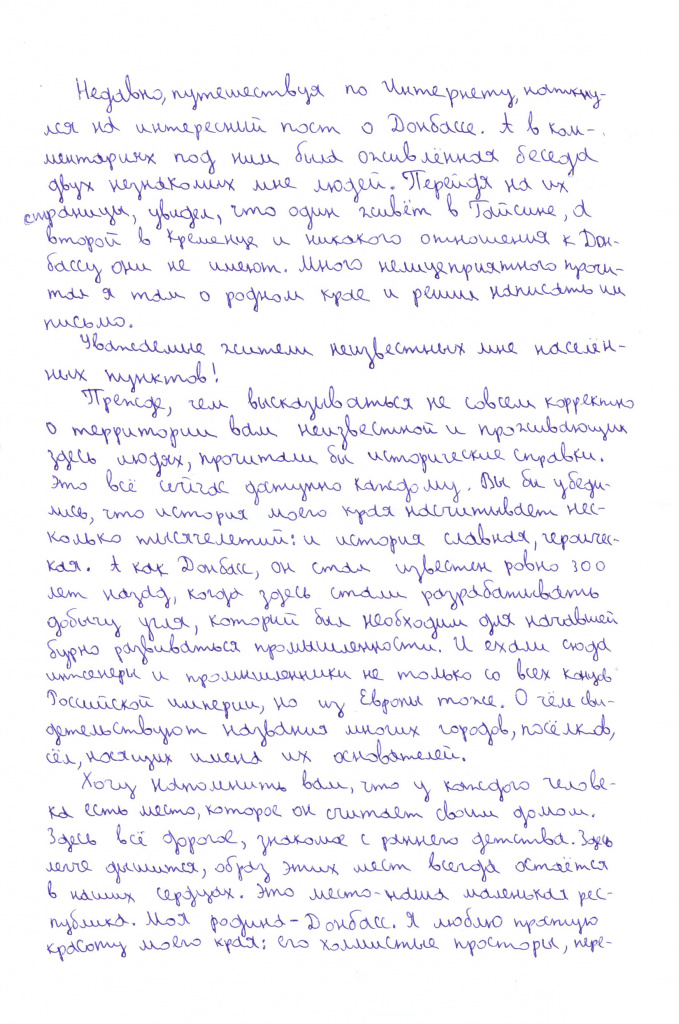 Недавно, путешествуя по Интернету, наткну-
лся на интересний пост о Донбассе. А в ком-
ментариях под ним была оживлённая беседа
двух незнакомих мне людей. Перейдя на их
страницы, увидел, что один живёт в Гайсине, а
второй в Кременце и никакого отношения к Дон-
бассу они не имеют. Много нелицеприятного прочи-
тал я там о родном крае и решил написать им
письмо.
Уважаемые жители неизвестных мне населён-
ных пунктов!
Прежде, чем высказываться не совсем корректно
о территории вам неизвестной и проживающих
здесь людях, прочитали бы исторические справки.
Это всё сейчас доступно каждому. Вы би убеди-
лись, что история моего края насчитывает нес-
колько тысячелетий: и история славная, героичес-
кая. А как Донбасс, он стал известен ровно 300
лет назад, когда здесь стали разрабатывать
добычу угля, который был необходим для начавшей
бурно развиваться промышленности. И ехали сюда
инженеры и промышленники не только со всех концов
Российской империи, но из Европы тоже. О чём сви-
детельствуют названия многих городов, посёлков,
сёл, носящих имена их основателей.
Хочу напомнить вам, что у каждого челове-
ка есть место, которое он считает своим домом.
Здесь всё дорогое, знакомое с раннего детства. Здесь
легче дышится, образ этих мест всегда остаётся
в наших сердцах. Это место-наша маленькая рес-
публика. Моя родина-Донбасс. Я люблю простую
красоту моего края: его холмистые просторы, пере-